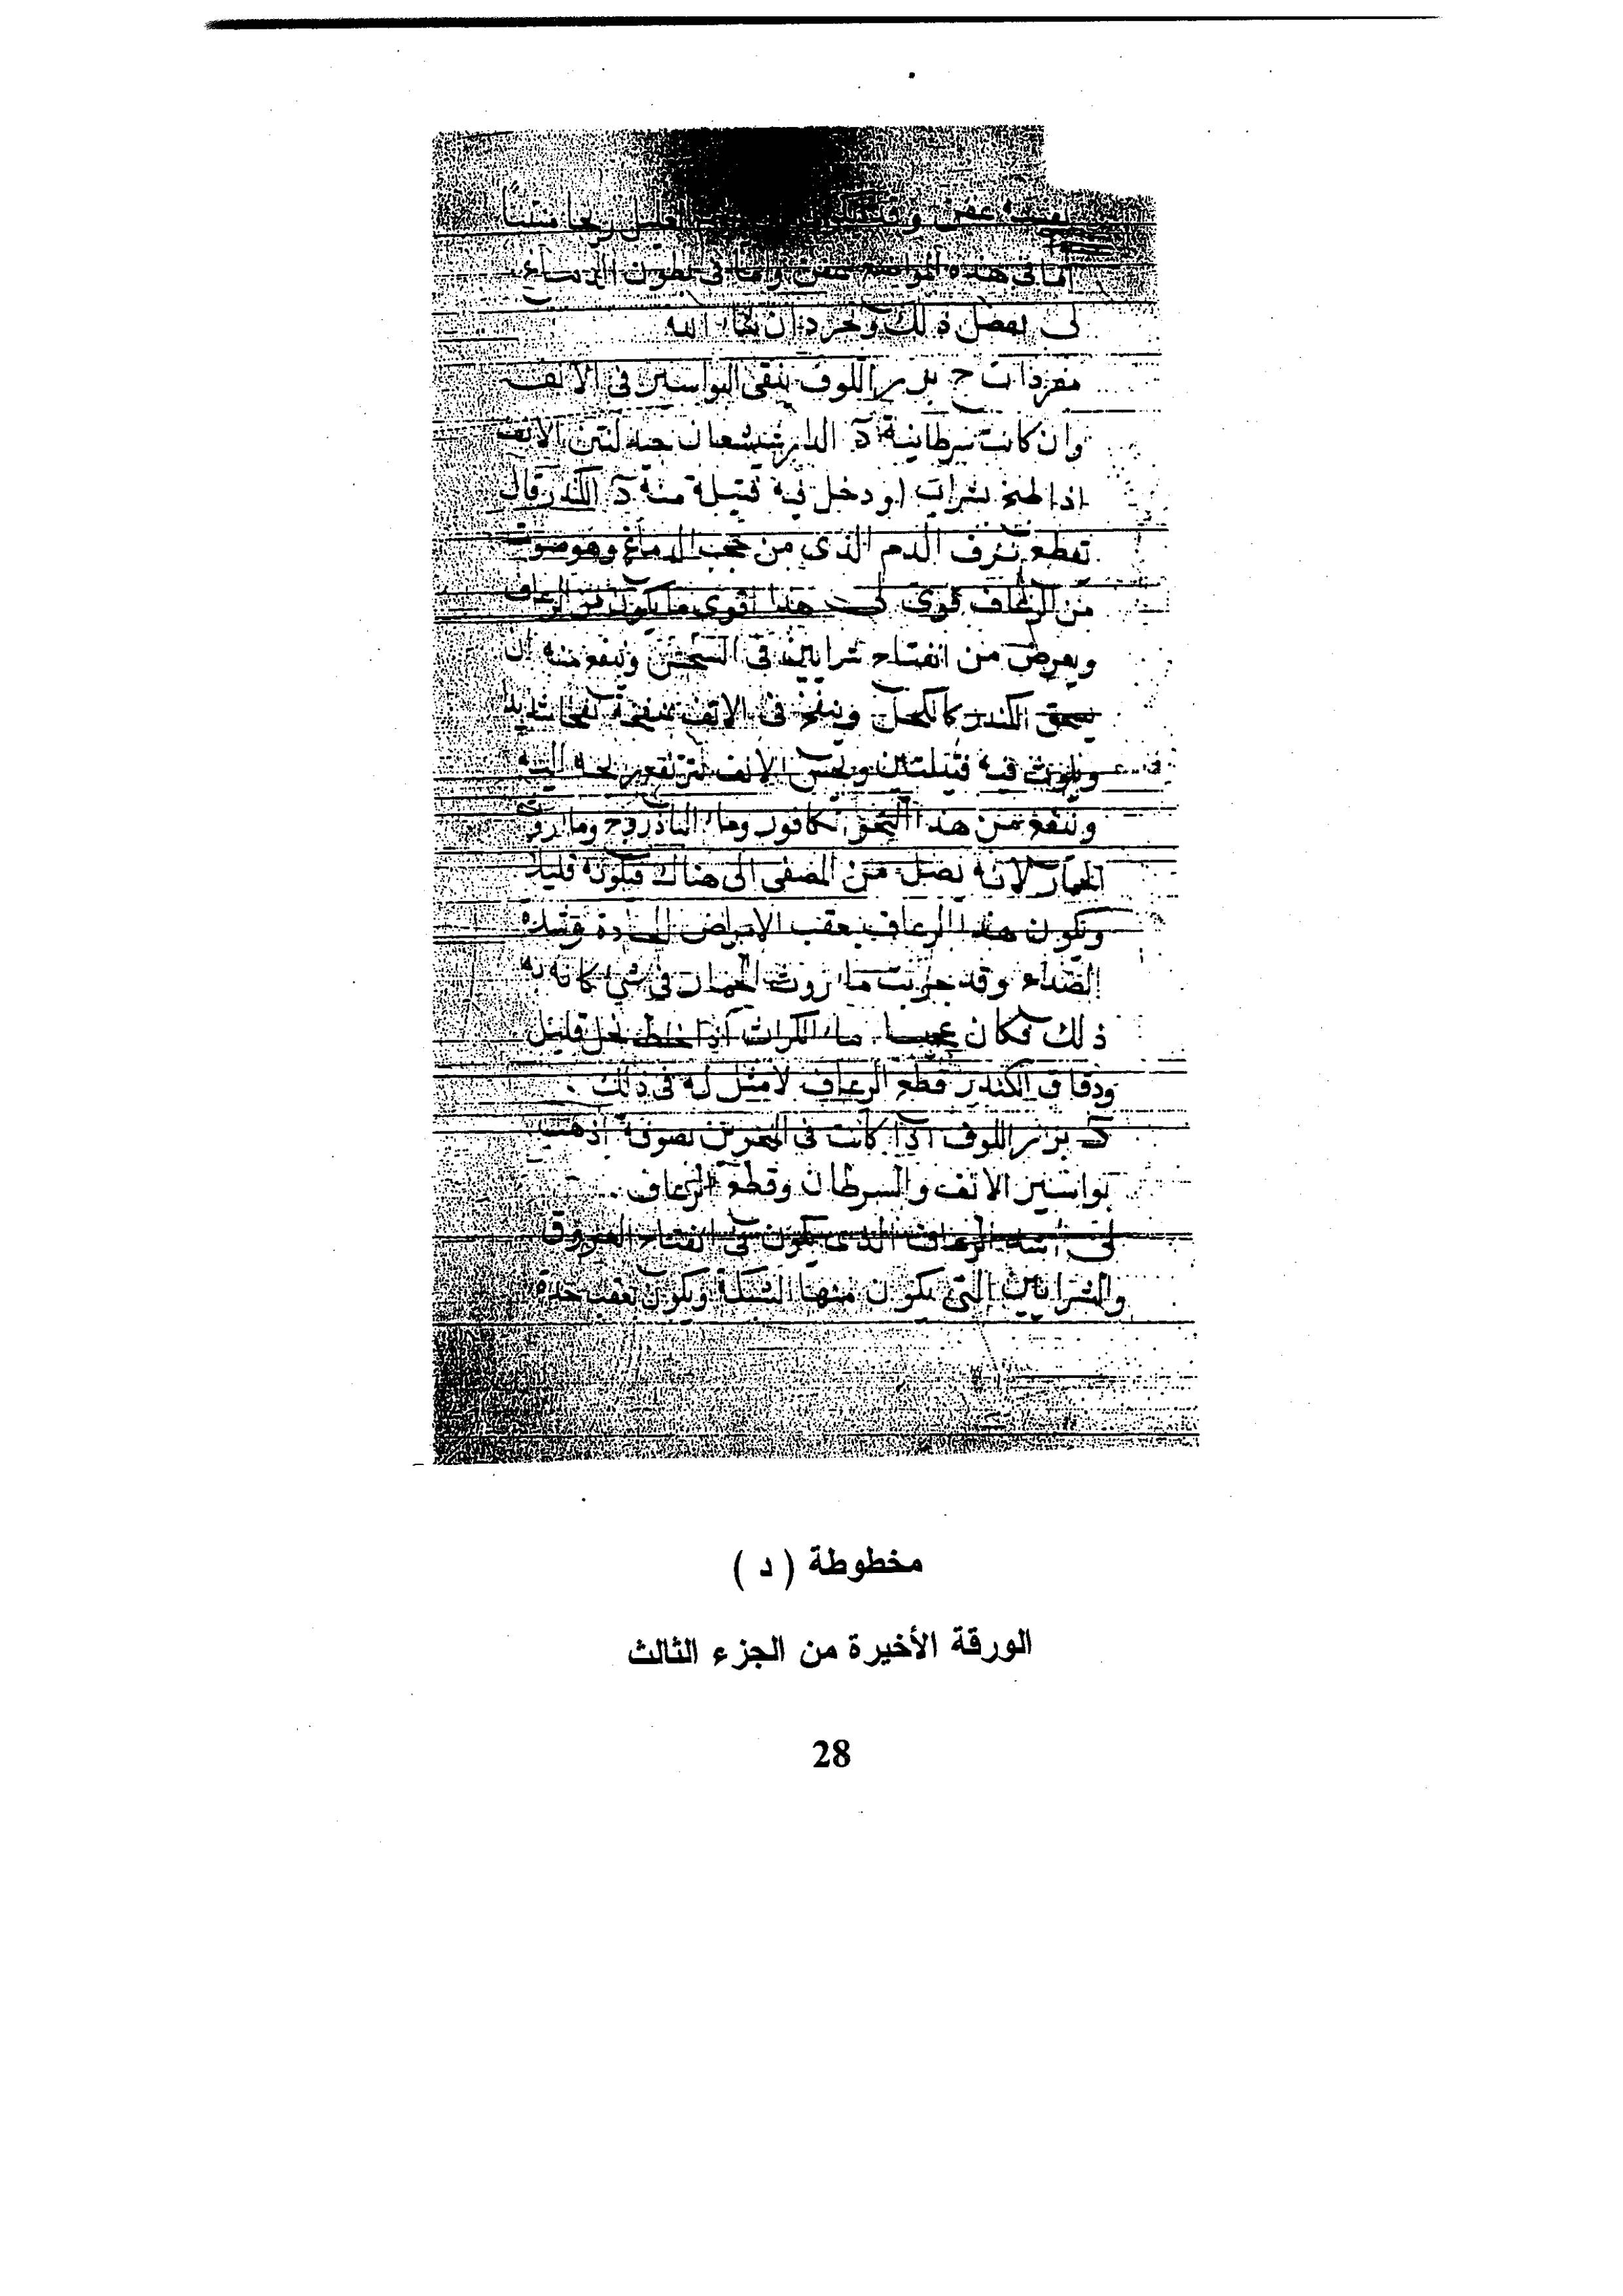 عفن وقد ريحا منتنا
اما فى هذه المواضع عفن واما فى بطون الدماغ
لى يفصل ذلك ويحرر ان شاء الله
مفردات ج بزر اللوف ينقى البواسير فى الانف
وان كانت سرطانية د الدارشيشعان جيد لنتن الانف
اذا طبخ بشراب او دخل فيه فتيلة منه د الكندر قال
تقطع نزف الدم الذى من حجب الدماغ وهو صوت
من الرعاف قوى لى هذا اقوى ما يكون من الرعاف
ويعرض من انفتاح شرايين فى وينفع منه ان
يسحق الكندر كالكحل وينفخ فى الانف نفخا شديدا
ويلوث فيه فتيلتين ويحبس الانف
وينفع من هذا الكافور وماء الباذروج وماء روث
الحمار لانه يصل من المصفى الى هناك قليلا
ويكون هذا الرعاف بعقب الامراض الحادة وشدة
الصداع وقد جربت ماء روث الحمار فى شى كانه
ذلك فكان عجيبا ماء الكراث اذا خلط بخل قليل
ودقاق الكندر قطع الرعاف لا مثل له فى ذلك
د بزر اللوف اذا كانت فى المنخرين بصوفة اذهبت
بواسير الانف والسرطان وقطع الرعاف
لى اشد الرعاف الذى يكون فى انفتاح العروق
والشرايين التى يكون منها الشبكة ويكون بعقب حدة
مخطوطة ( د )
الورقة الأخيرة من الجزء الثالث
28